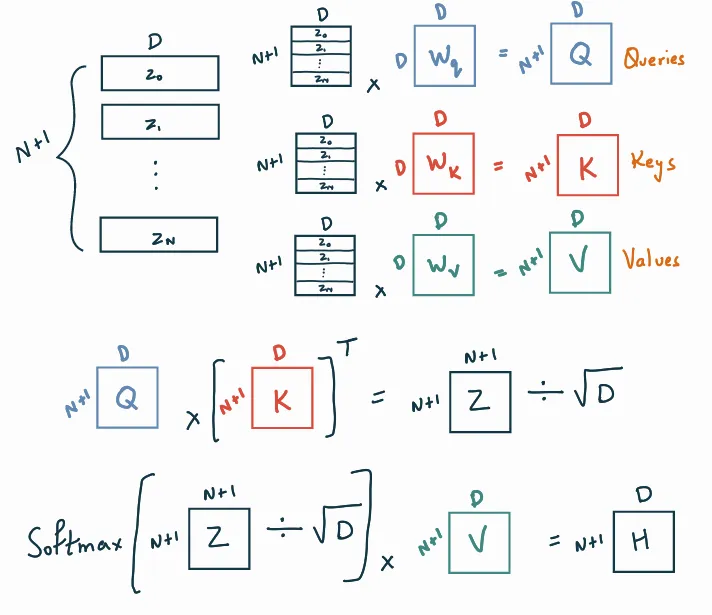 D
N+1
z₀
z₁
⋮
z_N
D
N+1
z₀
z₁
⋮
z_N
×
D
D
W_q
=
D
N+1
Q
Queries
D
N+1
z₀
z₁
⋮
z_N
×
D
D
W_K
=
D
N+1
K
Keys
D
N+1
z₀
z₁
⋮
z_N
×
D
D
W_V
=
D
N+1
V
Values
D
N+1 Q × [ N+1 K ]ᵀ = N+1 Z ÷ √D
D
N+1
Softmax [ N+1 Z ÷ √D ] × N+1 V = N+1 H
N+1
D
D